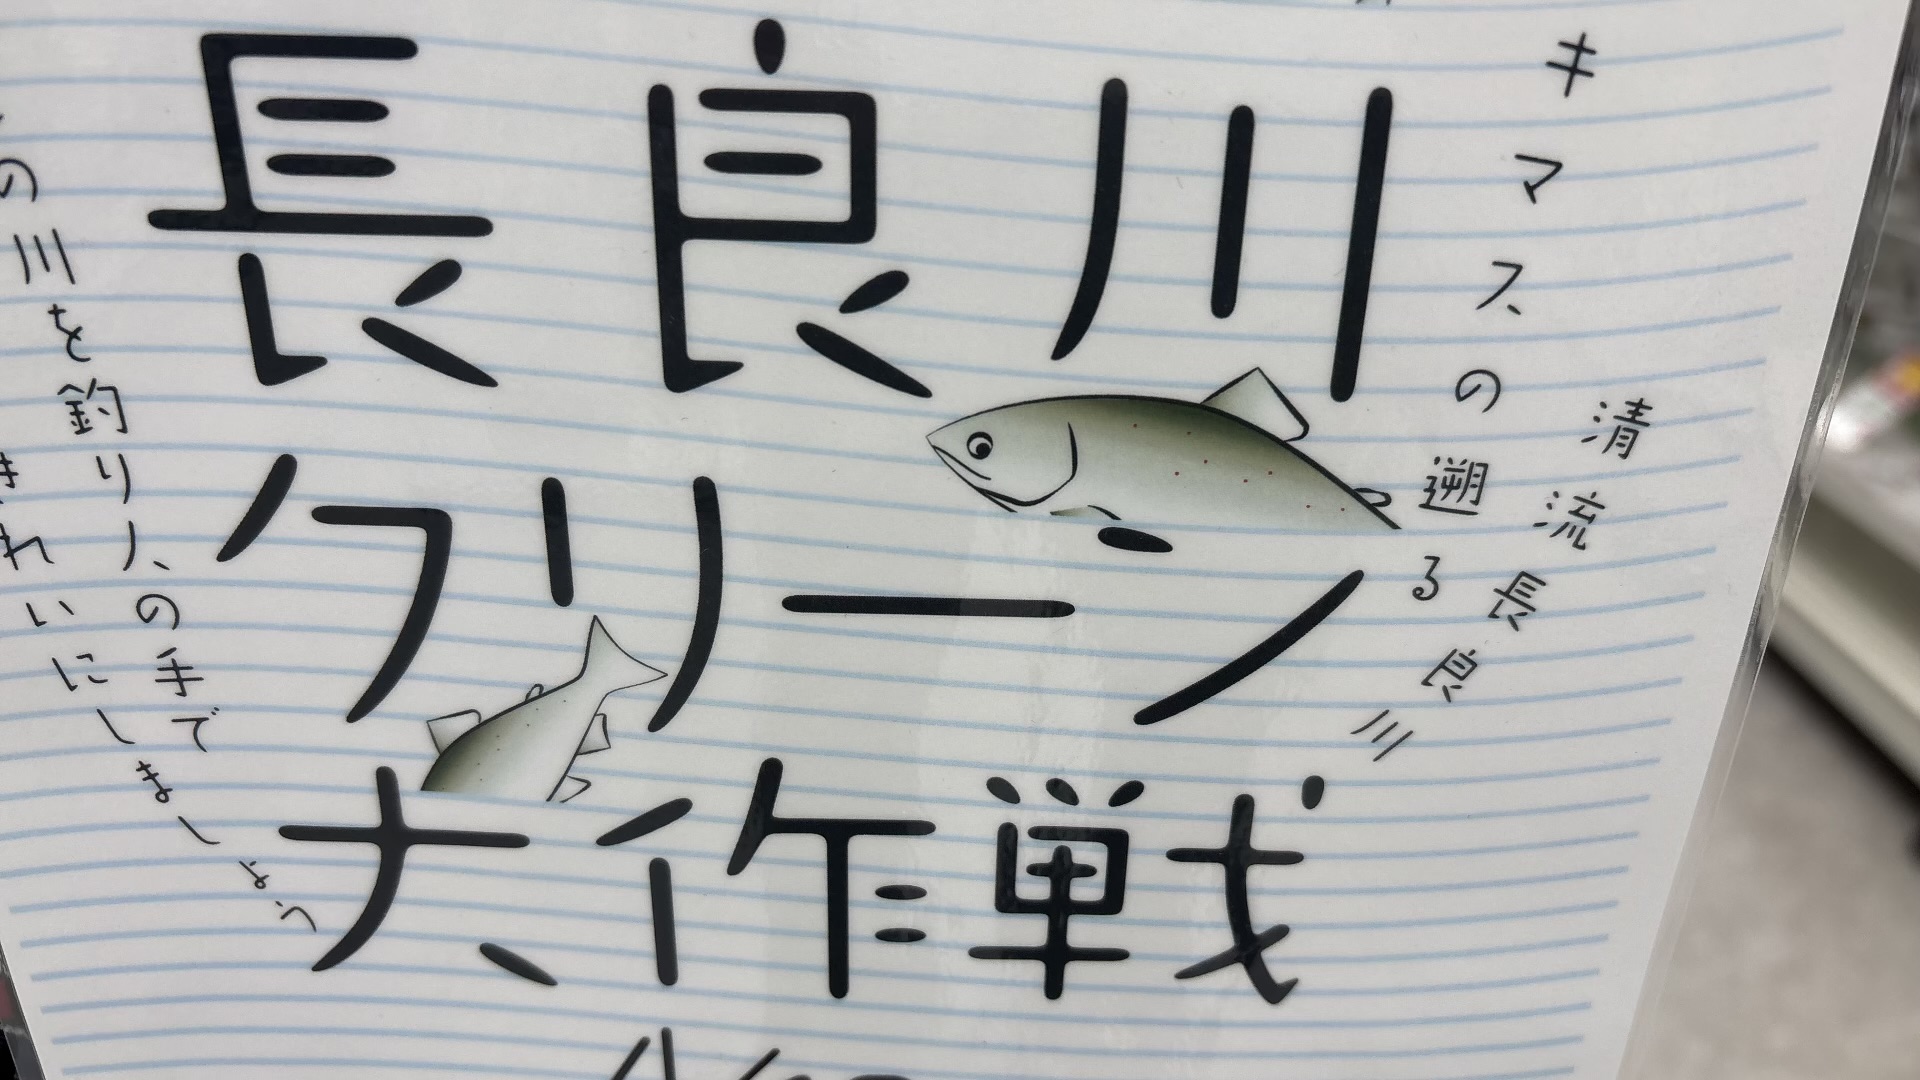 長良川
クリーン
大作戦
キマスの遡る
清流長良川
の川を釣り人の手で
きれいにしましょう